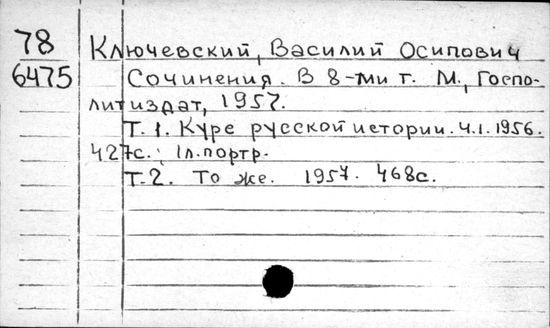 78
6475
Ключевский, Василий Осипович
Сочинения. В 8-ми т. М., Госпо-
литиздат, 1957.
Т. 1. Курс русской истории. ч.1. 1956.
427с.; 1л.портр.
Т.2. То же. 1957. 468с.